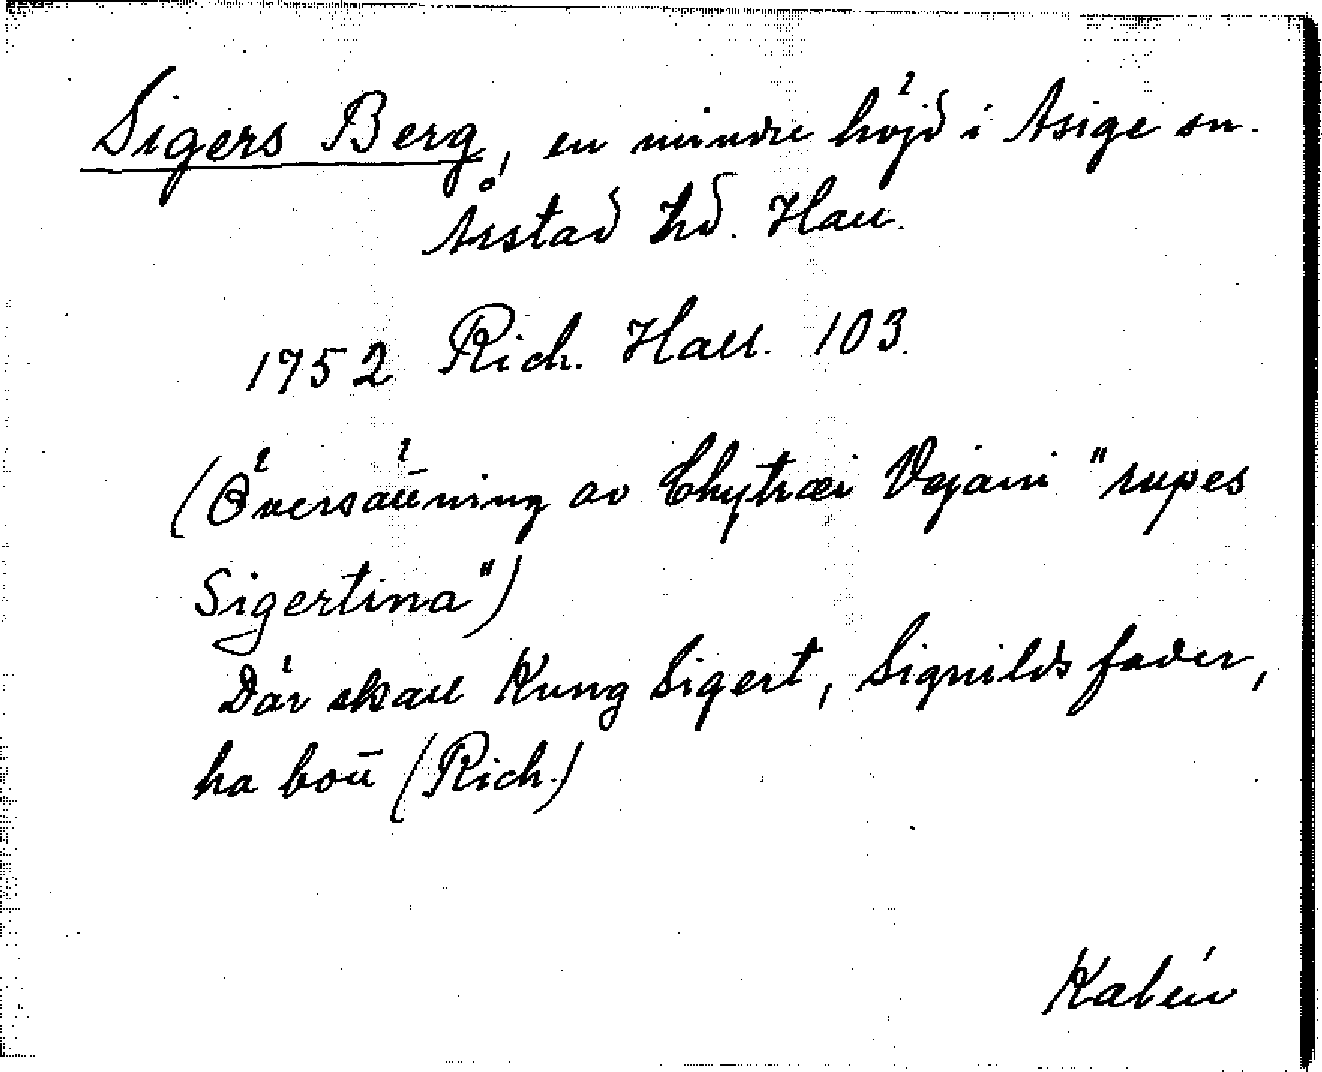 Sigers Berg, en mindre höjd i Asige sn.
Årstad hd. Hall.
1752 Rich. Hall. 103.
(Översättning av Chytræi Vejani "rupes
Sigertina")
Där skall Kung Sigert, Signilds fader,
ha bott (Rich.)
Kalén